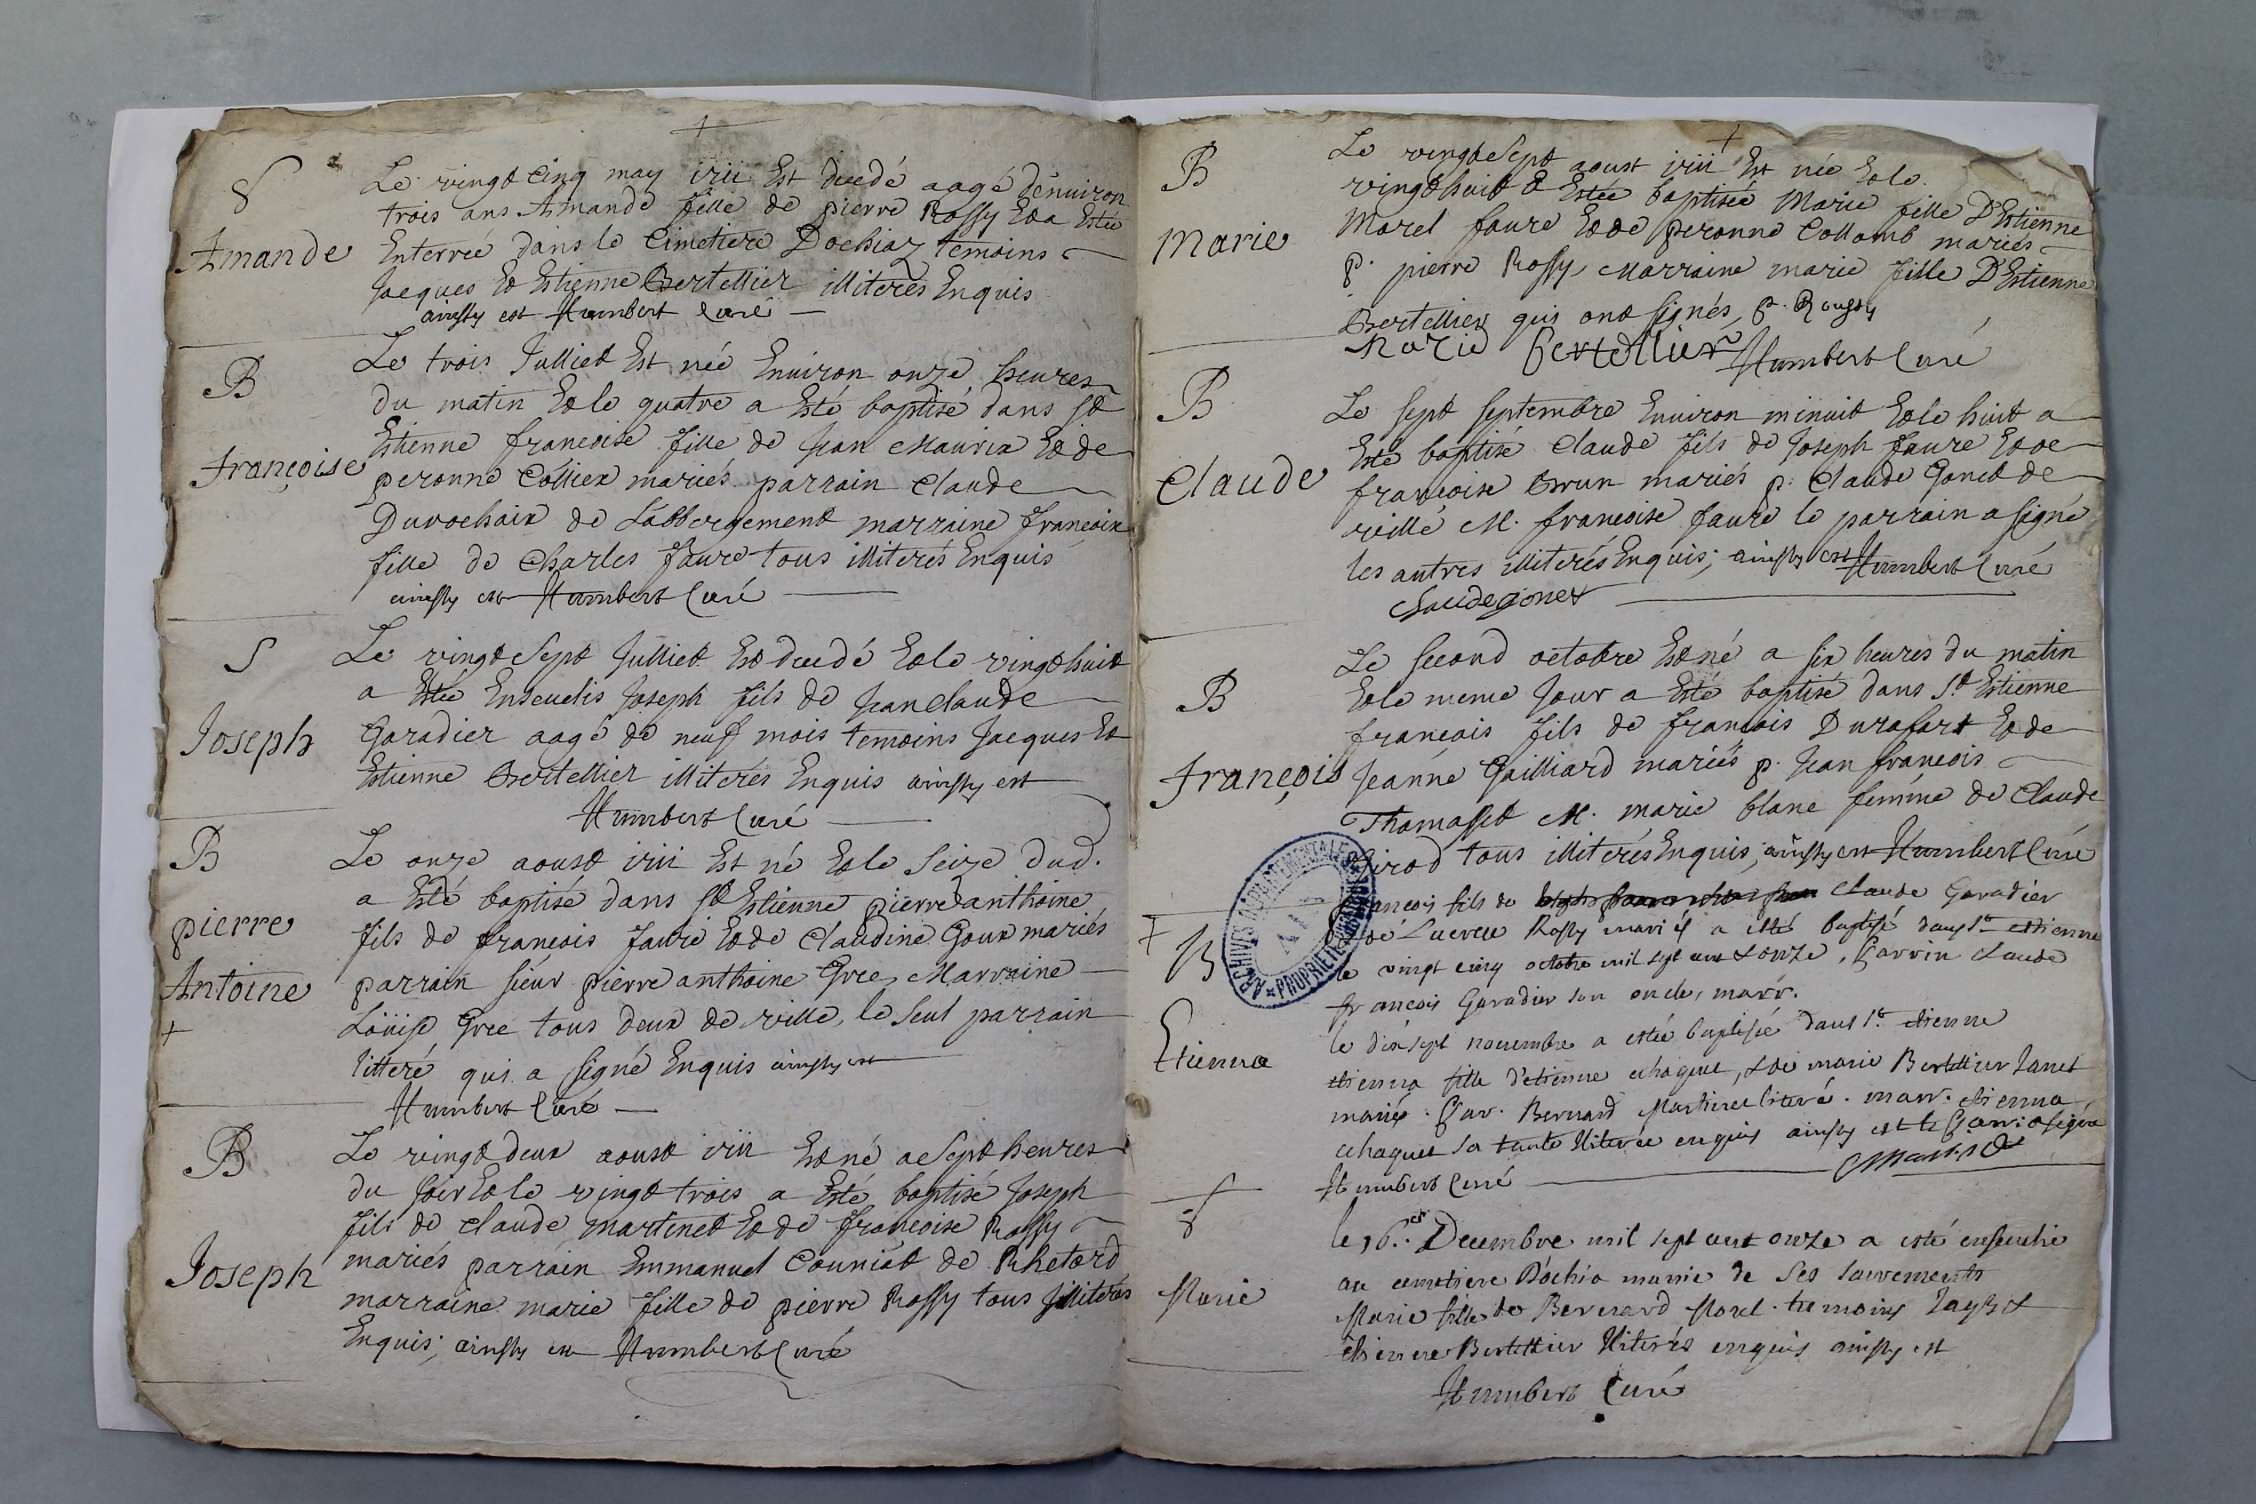 S
Amande
Le vingt cinq may est decedé aagé denuiron
trois ans Amande fille de pierre Rossy Et a Estée
Enterrée dans le Cimetiere Dochiaz temoins
Jacques Et Estienne Bertellier illiterés Enquis
ainssy est Humbert Curé
B
Françoise
Le trois Julliet Est née Enuiron onze heures
du matin Et le quatre a Esté baptisé dans St
Estienne francoise fille de Jean Maurix Et de
peronne Collier mariés parrain Claude
Durochaix de Labbergement marraine francoise
fille de Charles faure tous illiterés Enquis
ainssy est Humbert Curé
S
Joseph
Le vingt Sept Julliet Est decedé Et le vingt huit
a Estée Enseuelis Joseph fils de Jean Claude
Garadier aagé de neuf mois temoins Jacques Et
Estienne Bertellier illiterés Enquis ainssy est
Humbert Curé
B
pierre
Antoine
+
Le onze aoust Est né Et le Seize dud.
a Esté baptisé dans St Estienne pierre anthoine
fils de françois faure Et de Claudine Goux mariés
parrain sieur pierre anthoine Gree Marraine
Loüise Gree tous deux de ville, le Seul parrain
litteré qui a signé Enquis ainssy est
Humbert Curé
B
Joseph
Le vingt deux aoust Est né a Sept heures
du soir Et le vingt trois a Esté baptisé Joseph
fils de Claude martinet Et de françoise Rossy
mariés parrain Emmanuel Couniot de Rhetord
marraine marie fille de pierre Rossy tous illiterés
Enquis; ainssy est Humbert Curé
B
Marie
Le vingt Sept aoust Est née Et le
vingt huit Estée baptisée Marie fille D'Estienne
Morel faure Et de peronne Collomb mariés
p. pierre Rossy, Marraine marie fille D'Estienne
Bertellier qui ont signés, p. Roussy
Marie Bertellier Humbert Curé
B
Claude
Le sept septembre Enuiron minuit Et le huit a
Esté baptisé Claude fils de Joseph faure Et de
françoise Brun mariés p. Claude Gonet de
ville M. francoise faure le parrain a signé
les autres illiterés Enquis; ainssy est Humbert Curé
Claude gonet
B
François
Le second octobre Est né a six heures du matin
Et le meme Jour a Esté baptisé dans St Estienne
francois fils de francois Durafort Et de
Jeanne Gailliard mariés p. Jean francois
Thomasset M. marie blanc femme de Claude
Girod tous illiterés Enquis; ainssy est Humbert Curé
B
francois fils de Claude Garadier
Rossy mariés a esté baptisé dans St estienne
le vingt cinq octobre mil sept cent &onze, Parrin Claude
francois Garadier son oncle, marr.
Etienna
le dix sept nouembre a estée baptisée dans St etienne
etienna fille d'etienne chaque, & de marie Bertellier Janet
mariés. Par. Bernard Martinet literé. marr. etienna
chaques sa tante Iliterée enquis ainssy est le Parri a signé
Humbert Curé Martinet
S
Marie
le 16. Decembre mil sept cent onze a esté enseuelie
au cemetiere D'ochia munie de ses sacrements
Marie fille de Bernard Morel. temoins Jaques &
etienne Bertellier Iliterés enquis ainssy est
Humbert Curé
ARCHIVES DÉPARTEMENTALES
PROPRIÉTÉ PUBLIQUE